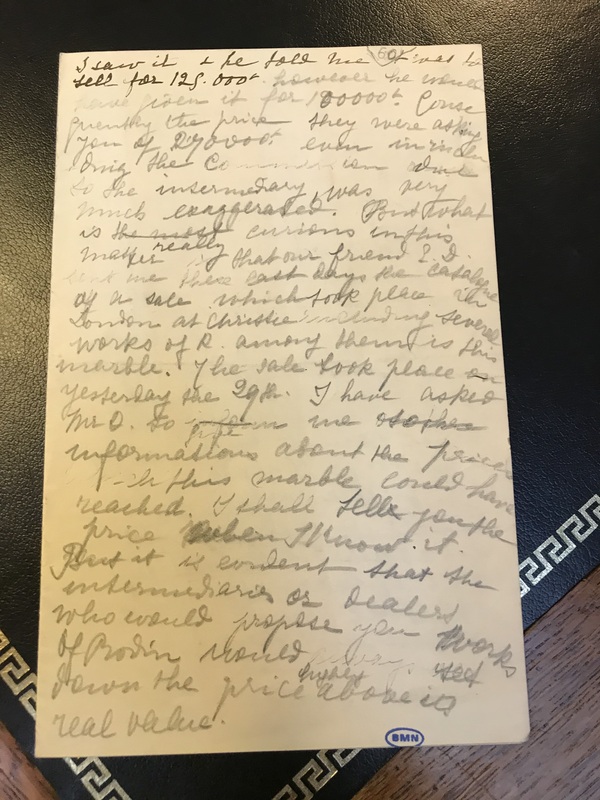 I saw it & he told me it was to
sell for 125.000f however he would
have given it for 100000f. Conse
quently the price they were asking
you of 270000f. even includ
ing the Commission due
to the intermediary, was very
much exaggerated. But what
is the most curious in this
matter really is that our friend E.D.
sent me these last days the catalogue
of a sale which took place in
London at Christie including several
works of R. among them is this
marble. The sale took place on
yesterday the 29th. I have asked
Mr O. to give me
informations about the price
this marble could have
reached. I shall tell you the
price when I know it.
But it is evident that the
intermediaries or dealers
who would propose you works
of Rodin would set
down the price higher above its
real value.
BMN